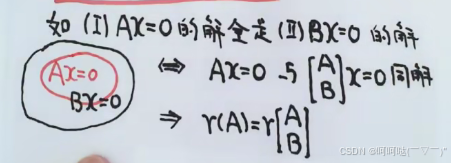 如 (I) AX=0 的解全是 (II) BX=0 的解
AX=0
BX=0
⇔ AX=0 与 [A B] X=0 同解
⇒ r(A)=r[A B]
CSDN @呵呵哒( ̄▽ ̄)"